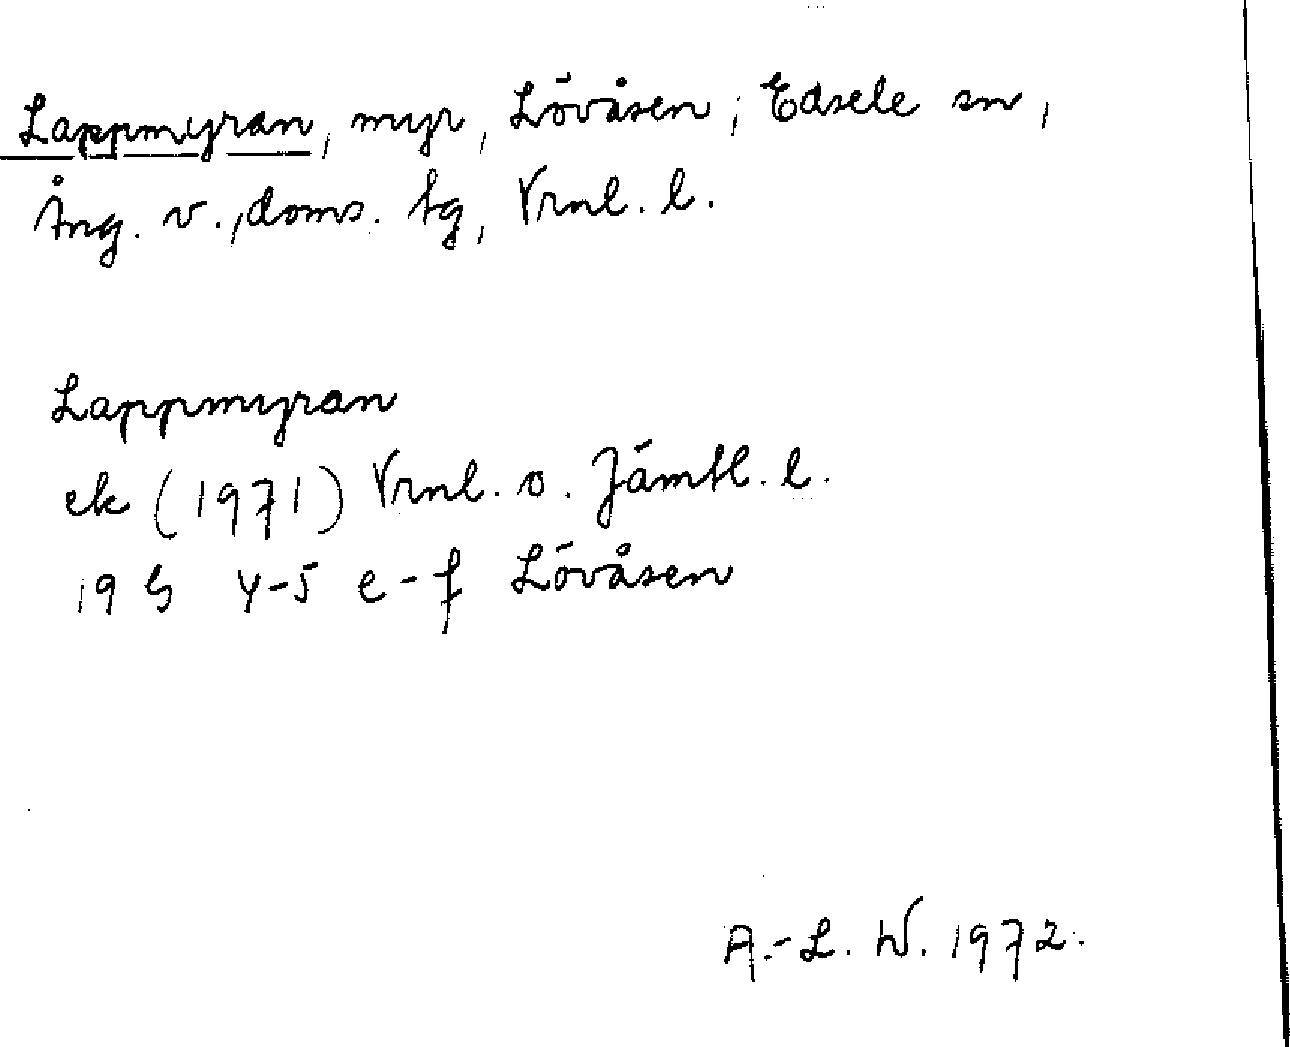 Lappmyran, myr, Lövåsen, Edsele sn,
Ång. v., doms. tg, Vrnl. l.
Lappmyran
ek (1971) Vrnl. o. Jämtl. l.
19 G 4-5 e-f Lövåsen
A.-L. W. 1972.